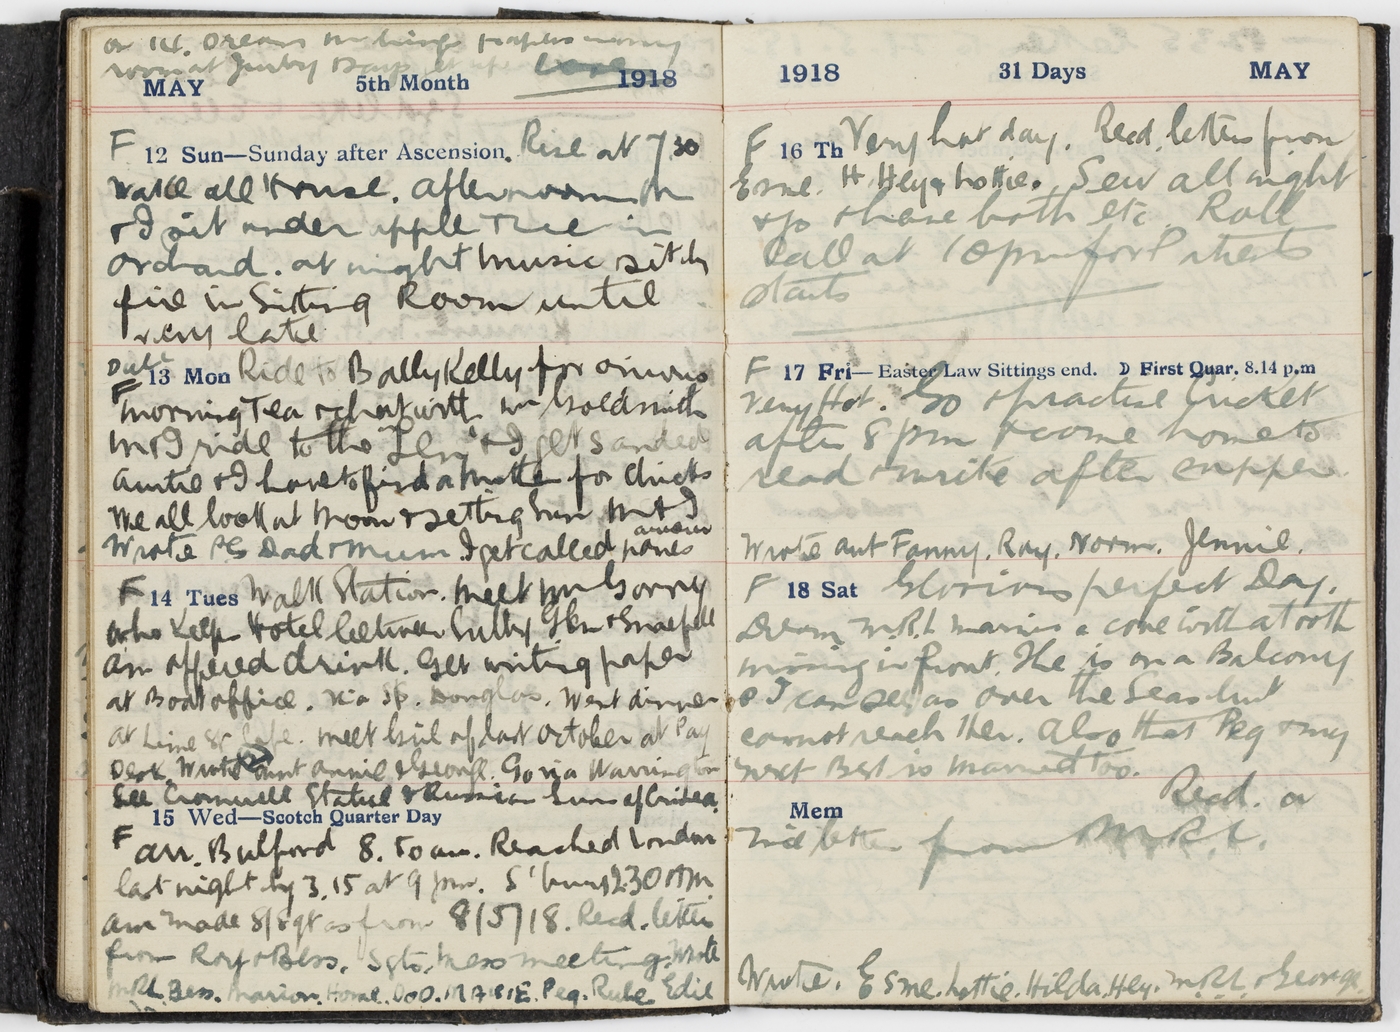 or 14. Dreams making papers many
room at Jurby
MAY 5th Month 1918
F 12 Sun—Sunday after Ascension. Rise at 7 30
Wake all House. afternoon M
& I sit under apple Tree in
Orchard. at night music sit by
fire in Sitting Room until
very late
F 13 Mon Ride to BallyKelly for
morning Tea & chat with Goldsmith
M & I ride to the "Len" & I get sanded
Auntie & I have to find a Mother for chicks
We all look at Moon & setting Sun M & I
Wrote PCs Dad & Mum I get called names
F 14 Tues Walk Station. Meet Mr Gorry
who Keeps Hotel between Sulby Glen & Snaefell
am offered drink. Get writing paper
at Boat office. Via SS. Douglas. Went dinner
at Lime St Cafe. Meet girl of last October at Pay
Desk. Wrote Aunt Annie & George. Go via Warrington
See Cromwell Statue & Russian Guns of Crimea
15 Wed—Scotch Quarter Day
F arr. Bulford 8. to am. Reached London
last night by 3.15 at 9 pm. S'bury 2.30 AM
am made S/Sgt as from 8/5/18. Recd. letter
from Roy & Bess. Sgts. Mess meeting. Wrote
MRL. Bess. Marion. Home. Peg. Rube Edie
1918 31 Days MAY
F 16 Th Very hot day. Recd. letters from
Esme. H. Hey & Lottie. Sew all night
& go & have bath etc. Roll
Call at 10 pm for Patients
starts
F 17 Fri—Easter Law Sittings end. ☽ First Quar. 8.14 p.m
Very Hot. Go & practise Cricket
after 8 pm & come home to
read & write after supper.
Wrote aunt Fanny, Ray, Norm. Jennie.
F 18 Sat Glorious perfect Day.
Dream MRL marries a cove with a tooth
missing in front. She is on a Balcony
& I can see as over the Seas but
cannot reach Her. Also that Peg & my
next Best is married too.
Mem Recd. a
letter from MRL.
Wrote. Esme. Lottie. Hilda. Hey. MRL & George.